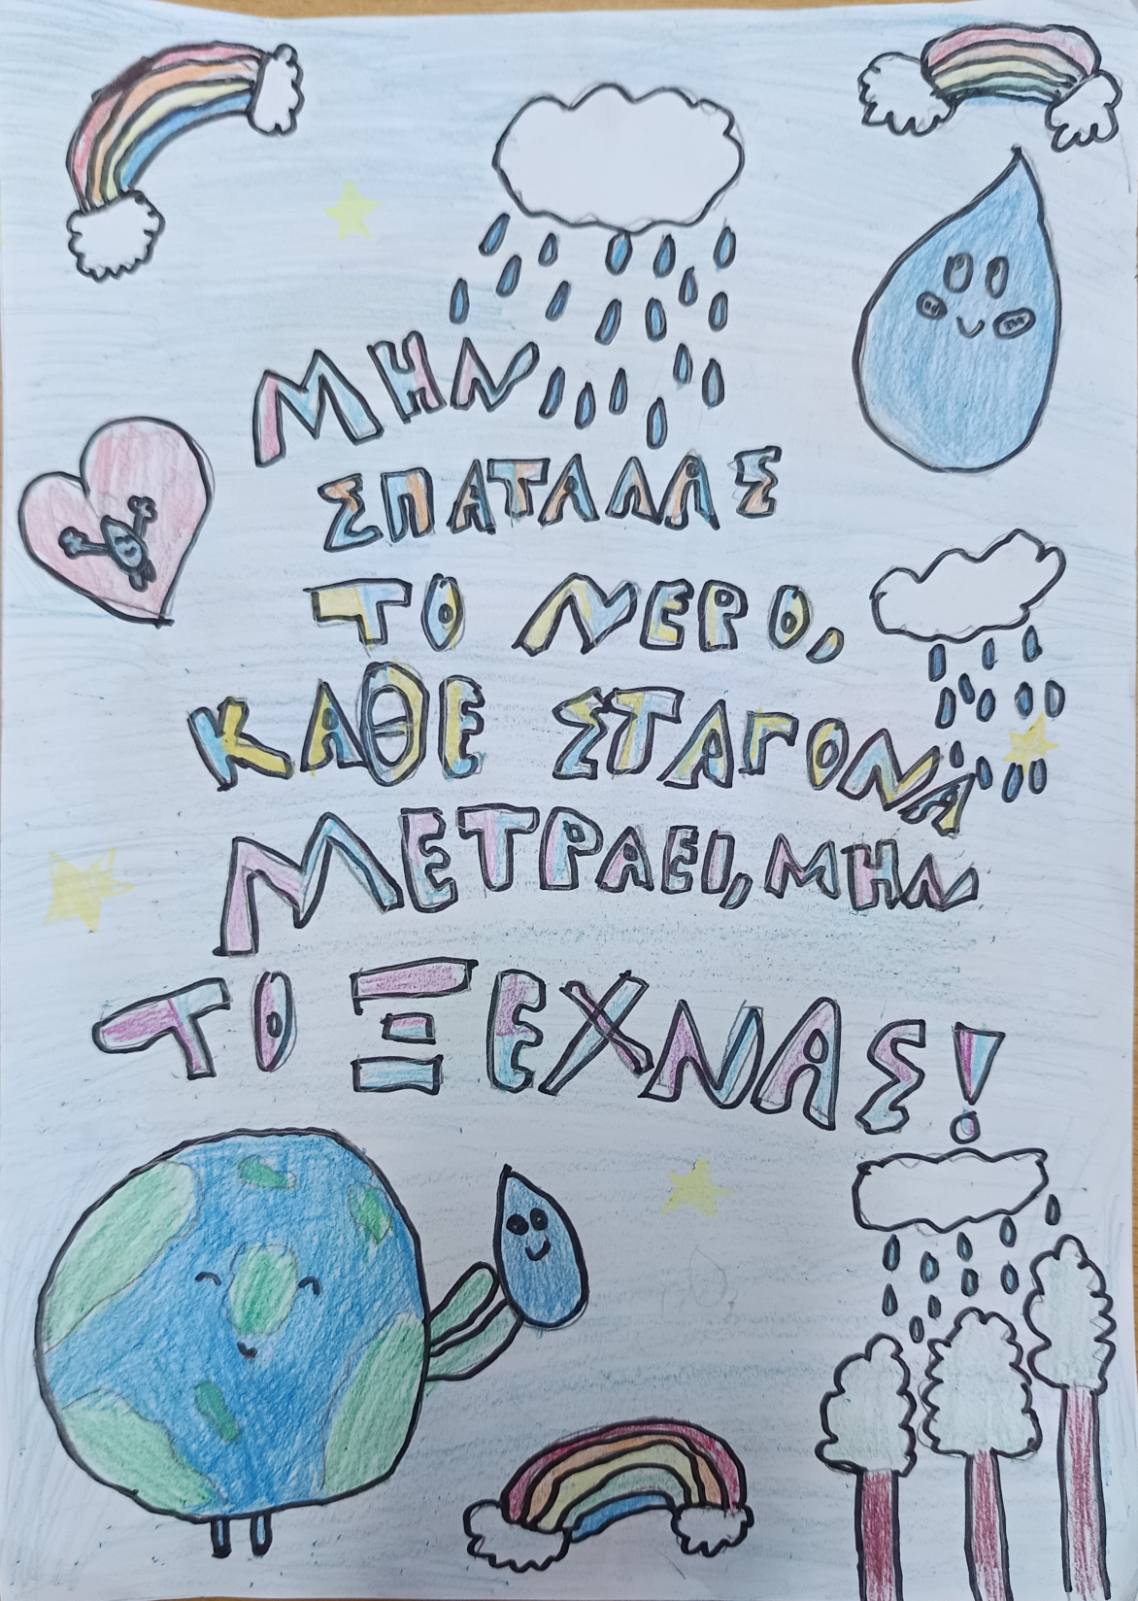 ΜΗΝ
ΣΠΑΤΑΛΑΣ
ΤΟ ΝΕΡΟ,
ΚΑΘΕ ΣΤΑΓΟΝΑ
ΜΕΤΡΑΕΙ, ΜΗΝ
ΤΟ ΞΕΧΝΑΣ!